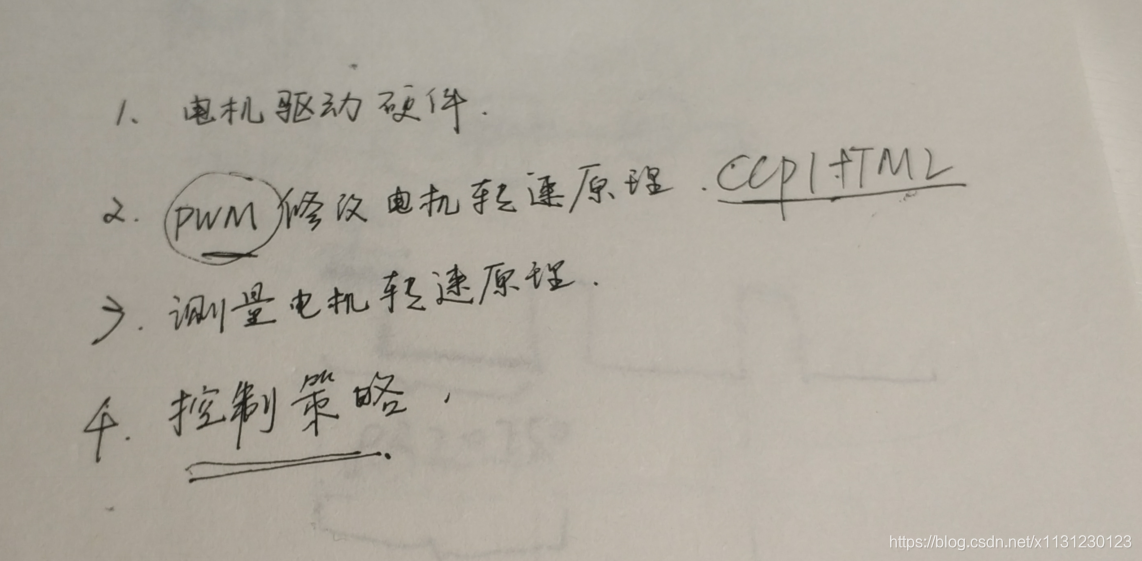 1、电机驱动硬件.
2. PWM修改电机转速原理. CCP1+TM2
3. 测量电机转速原理.
4. 控制策略.
https://blog.csdn.net/x1131230123